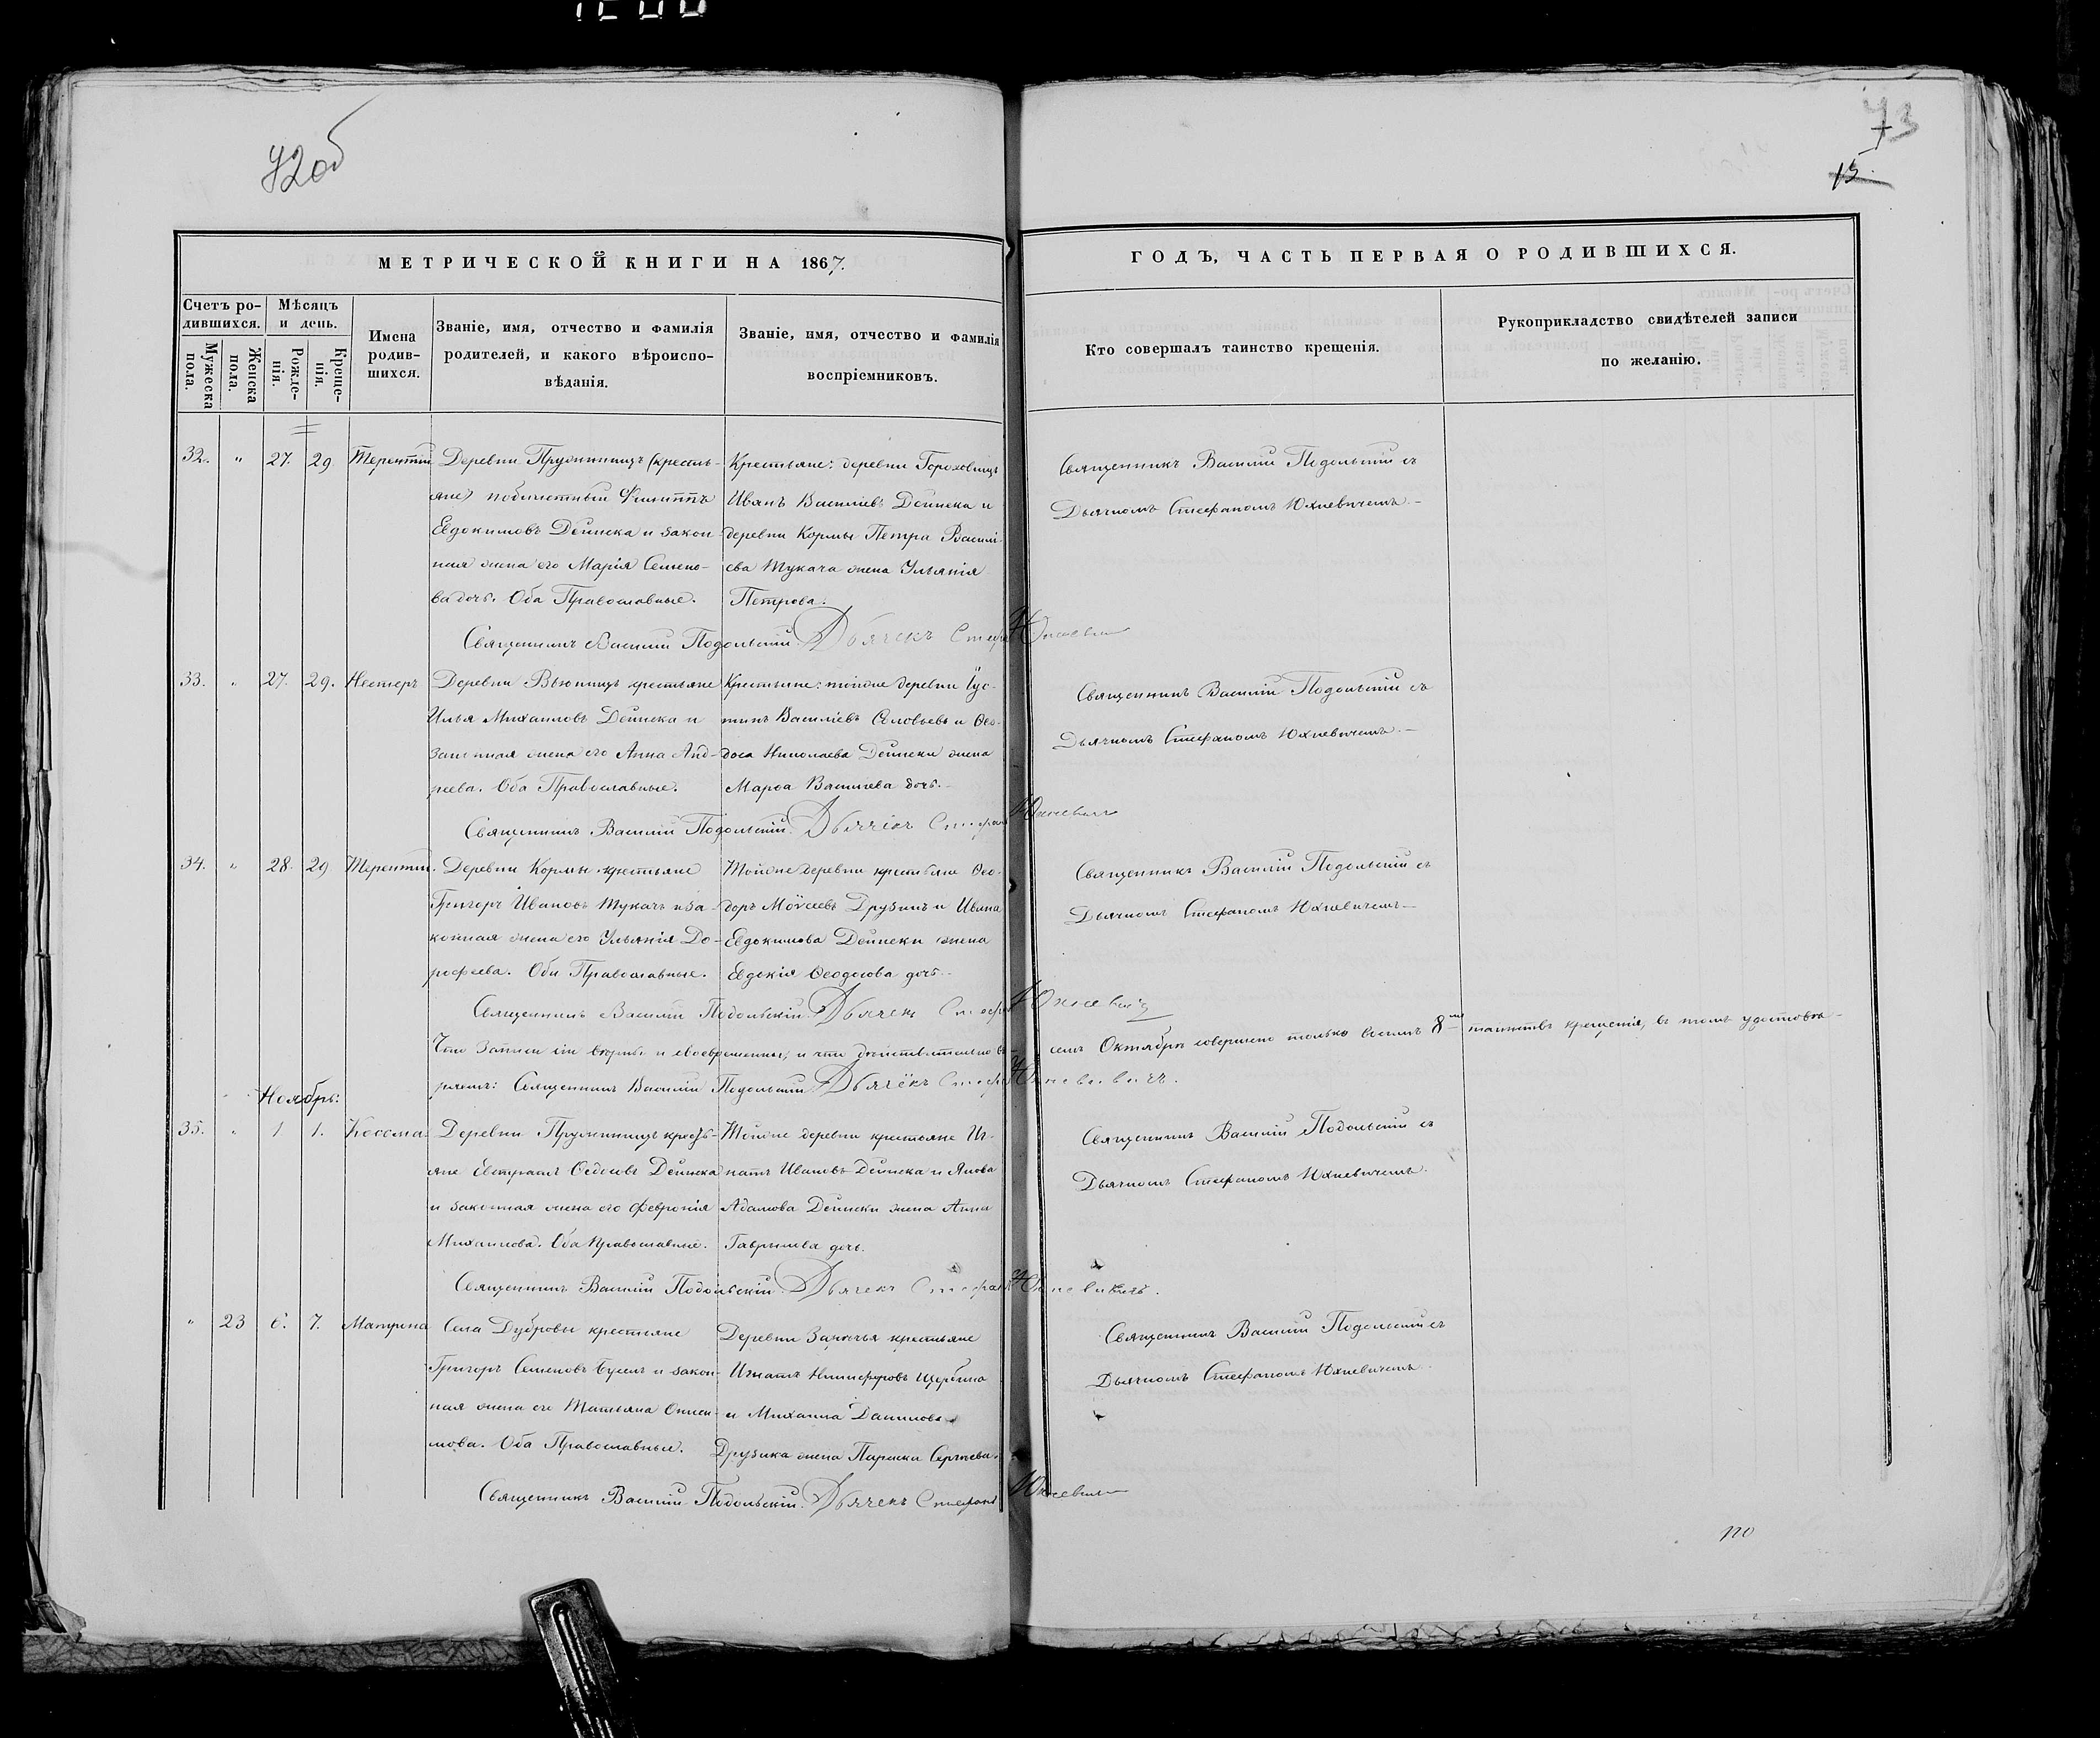 72об
73
13.
МЕТРИЧЕСКОЙ КНИГИ НА 1867.
ГОДЪ, ЧАСТЬ ПЕРВАЯ О РОДИВШИХСЯ.
Счетъ родившихся.
Мужеска пола.
Женска пола.
Мѣсяцъ и день.
Рожденія.
Крещенія.
Имена родившихся.
Званіе, имя, отчество и фамилія родителей, и какого вѣроисповѣданія.
Званіе, имя, отчество и фамилія воспріемниковъ.
Кто совершалъ таинство крещенія.
Рукоприкладство свидѣтелей записи по желанію.
32. " 27. 29 Терентій
Деревни Пружинищъ (крестьяне)
Филиппъ
Евдокимовъ Дейнека и закон-
ная жена его Марія Семено-
ва дочь. Оба Православные.
Крестьяне: деревни Гороховищъ
Иванъ Василіевъ Дейнека и
деревни Кормы Петра Василі-
ева Тукача жена Ульянія
Петрова.
Священникъ Василій Подольскій съ
Дьячкомъ Стефаномъ Юхневичемъ.–
Священникъ Василій Подольскій. Дьячекъ Стефанъ Юхневичъ
33. " 27. 29. Несторъ
Деревни Вьюнищъ крестьяне
Илья Михаиловъ Дейнека и
законная жена его Анна Анд-
реева. Оба Православные.
Крестьяне: тойже деревни Іус-
тинъ Василіевъ Соловьевъ и Ѳео-
доса Николаева Дейнеки жена
Марѳа Василіева дочь.
Священникъ Василій Подольскій съ
Дьячкомъ Стефаномъ Юхневичемъ.–
Священникъ Василій Подольскій. Дьячекъ Стефанъ Юхневичъ
34. " 28. 29 Терентій.
Деревни Кормы крестьяне
Григорѣ Ивановъ Тукачъ и за-
конная жена его Ульянія До-
рофеева. Оба Православные.
Тойже деревни крестьяне Ѳео-
доръ Моѵсеевъ Друзикъ и Ивана
Евдокимова Дейнеки жена
Евдокія Ѳеодосова дочь.
Священникъ Василій Подольскій съ
Дьячкомъ Стефаномъ Юхневичемъ–
Священникъ Василій Подольскій. Дьячекъ Стефанъ Юхневичъ
Что записи сіи вѣрны и своевременны, и что дѣйствительно въ семъ Октябрѣ совершено только восемь 8 таинствъ крещенія, въ томъ удостовѣ-
ряемъ: Священникъ Василій Подольскій Дьячекъ Стефанъ Юхневичъ.
Ноябрь:
35. " 1 1. Косма.
Деревни Пружинищъ кресть-
яне Евстратъ Ѳедоровъ Дейнека
и законная жена его Февронія
Михаилова. Оба Православные.
Тойже деревни крестьяне Иг-
натъ Ивановъ Дейнека и Якова
Адамова Дейнеки жена Анна
Гаврилова дочь.
Священникъ Василій Подольскій съ
Дьячкомъ Стефаномъ Юхневичемъ.
Священникъ Василій Подольскій. Дьячекъ Стефанъ Юхневичъ.
" 23 6. 7. Матрена
Села Дубровы крестьяне
Григорѣ Семеновъ Бусел и закон-
ная жена его Татьяна Онисі-
мова. Оба Православные.
Деревни Зарѣчья крестьяне
Игнатъ Никифоровъ Щербина
и Михаила Данилова
Друзика жена Параска Сергѣева.
Священникъ Василій Подольскій съ
Дьячкомъ Стефаномъ Юхневичемъ.
Священникъ Василій Подольскій. Дьячекъ Стефанъ Юхневичъ
по